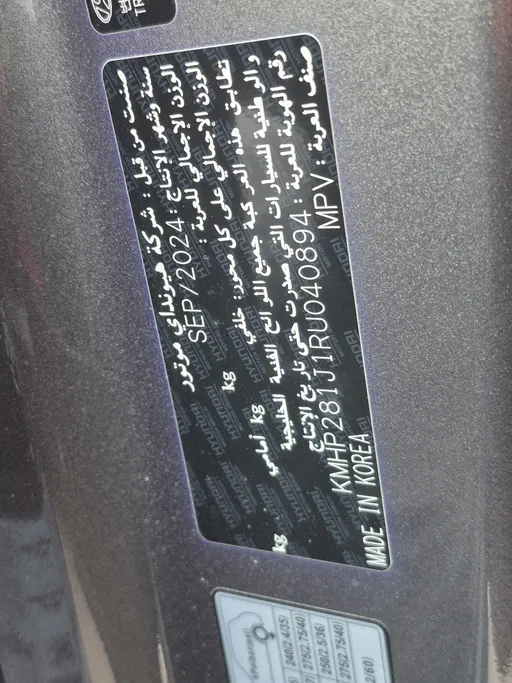 صنعت من قبل : شركة هيونداي موتور
سنة وشهر الإنتاج : SEP/2024
الوزن الإجمالي للعربة : kg
الوزن الإجمالي على كل محور: خلفي kg أمامي kg
تطابق هذه المركبة جميع اللوائح الفنية الخليجية
والوطنية للسيارات التي صدرت حتى تاريخ الإنتاج
رقم الهوية للعربة : KMHP281J1RU040894
صنف العربة : MPV
MADE IN KOREA
240(2.4/35)
275(2.75/40)
250(2.5/36)
275(2.75/40)